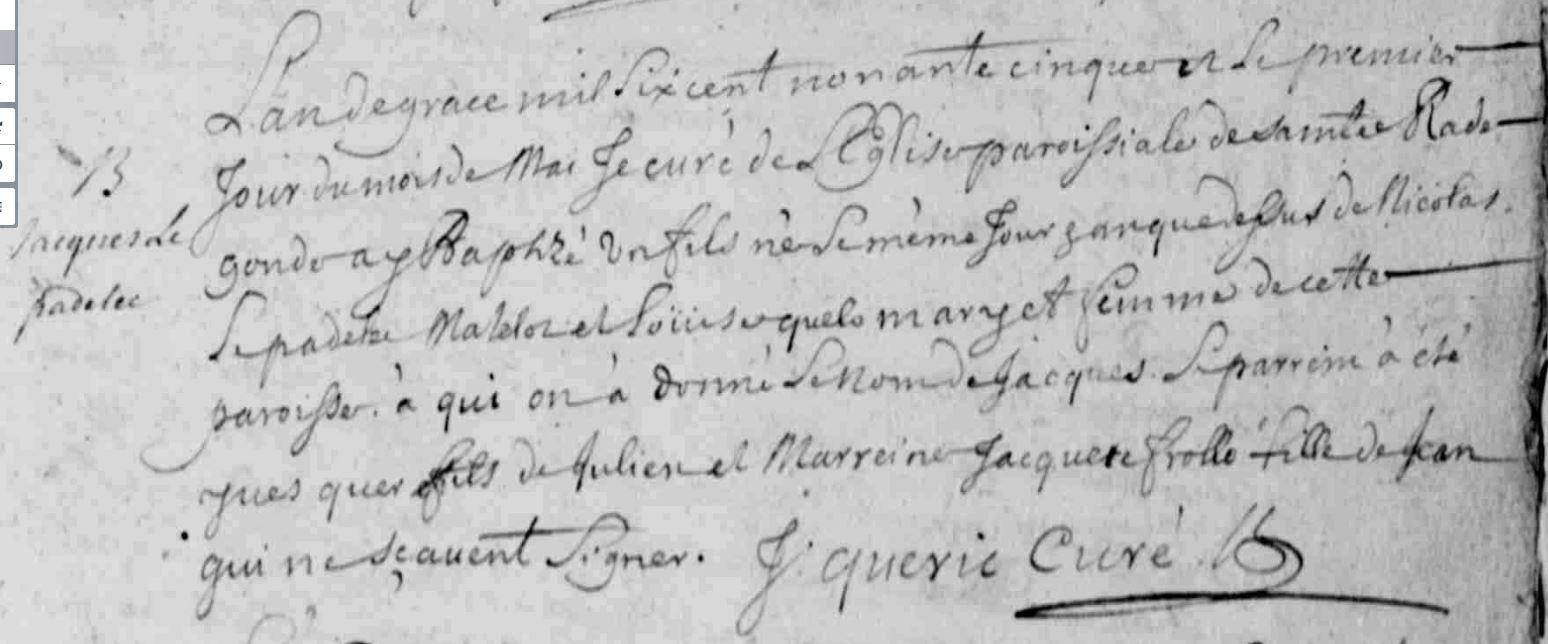 L'an de grace mil Six cent nonante cinque et Le premier
Jour du mois de Mai Je curé de L'Eglise paroissiale de sainte Rade-
B
gonde ay Baptizé Un fils né Le méme Jour que dessus de Nicolas
Jacques Le
padelec
Le padelec Matelot et Loüise quelo mary et femme de cette
paroisse. à qui on à donné Le Nom de Jacques. Le parrein à été
yues quer fils de Julien et Marreine Jacquete frollo fille de Jean
qui ne sçauent Signer. J. queric Curé